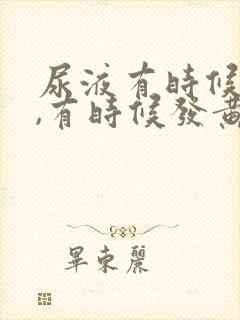 尿液有時候
,有時候發黃
畢東麗